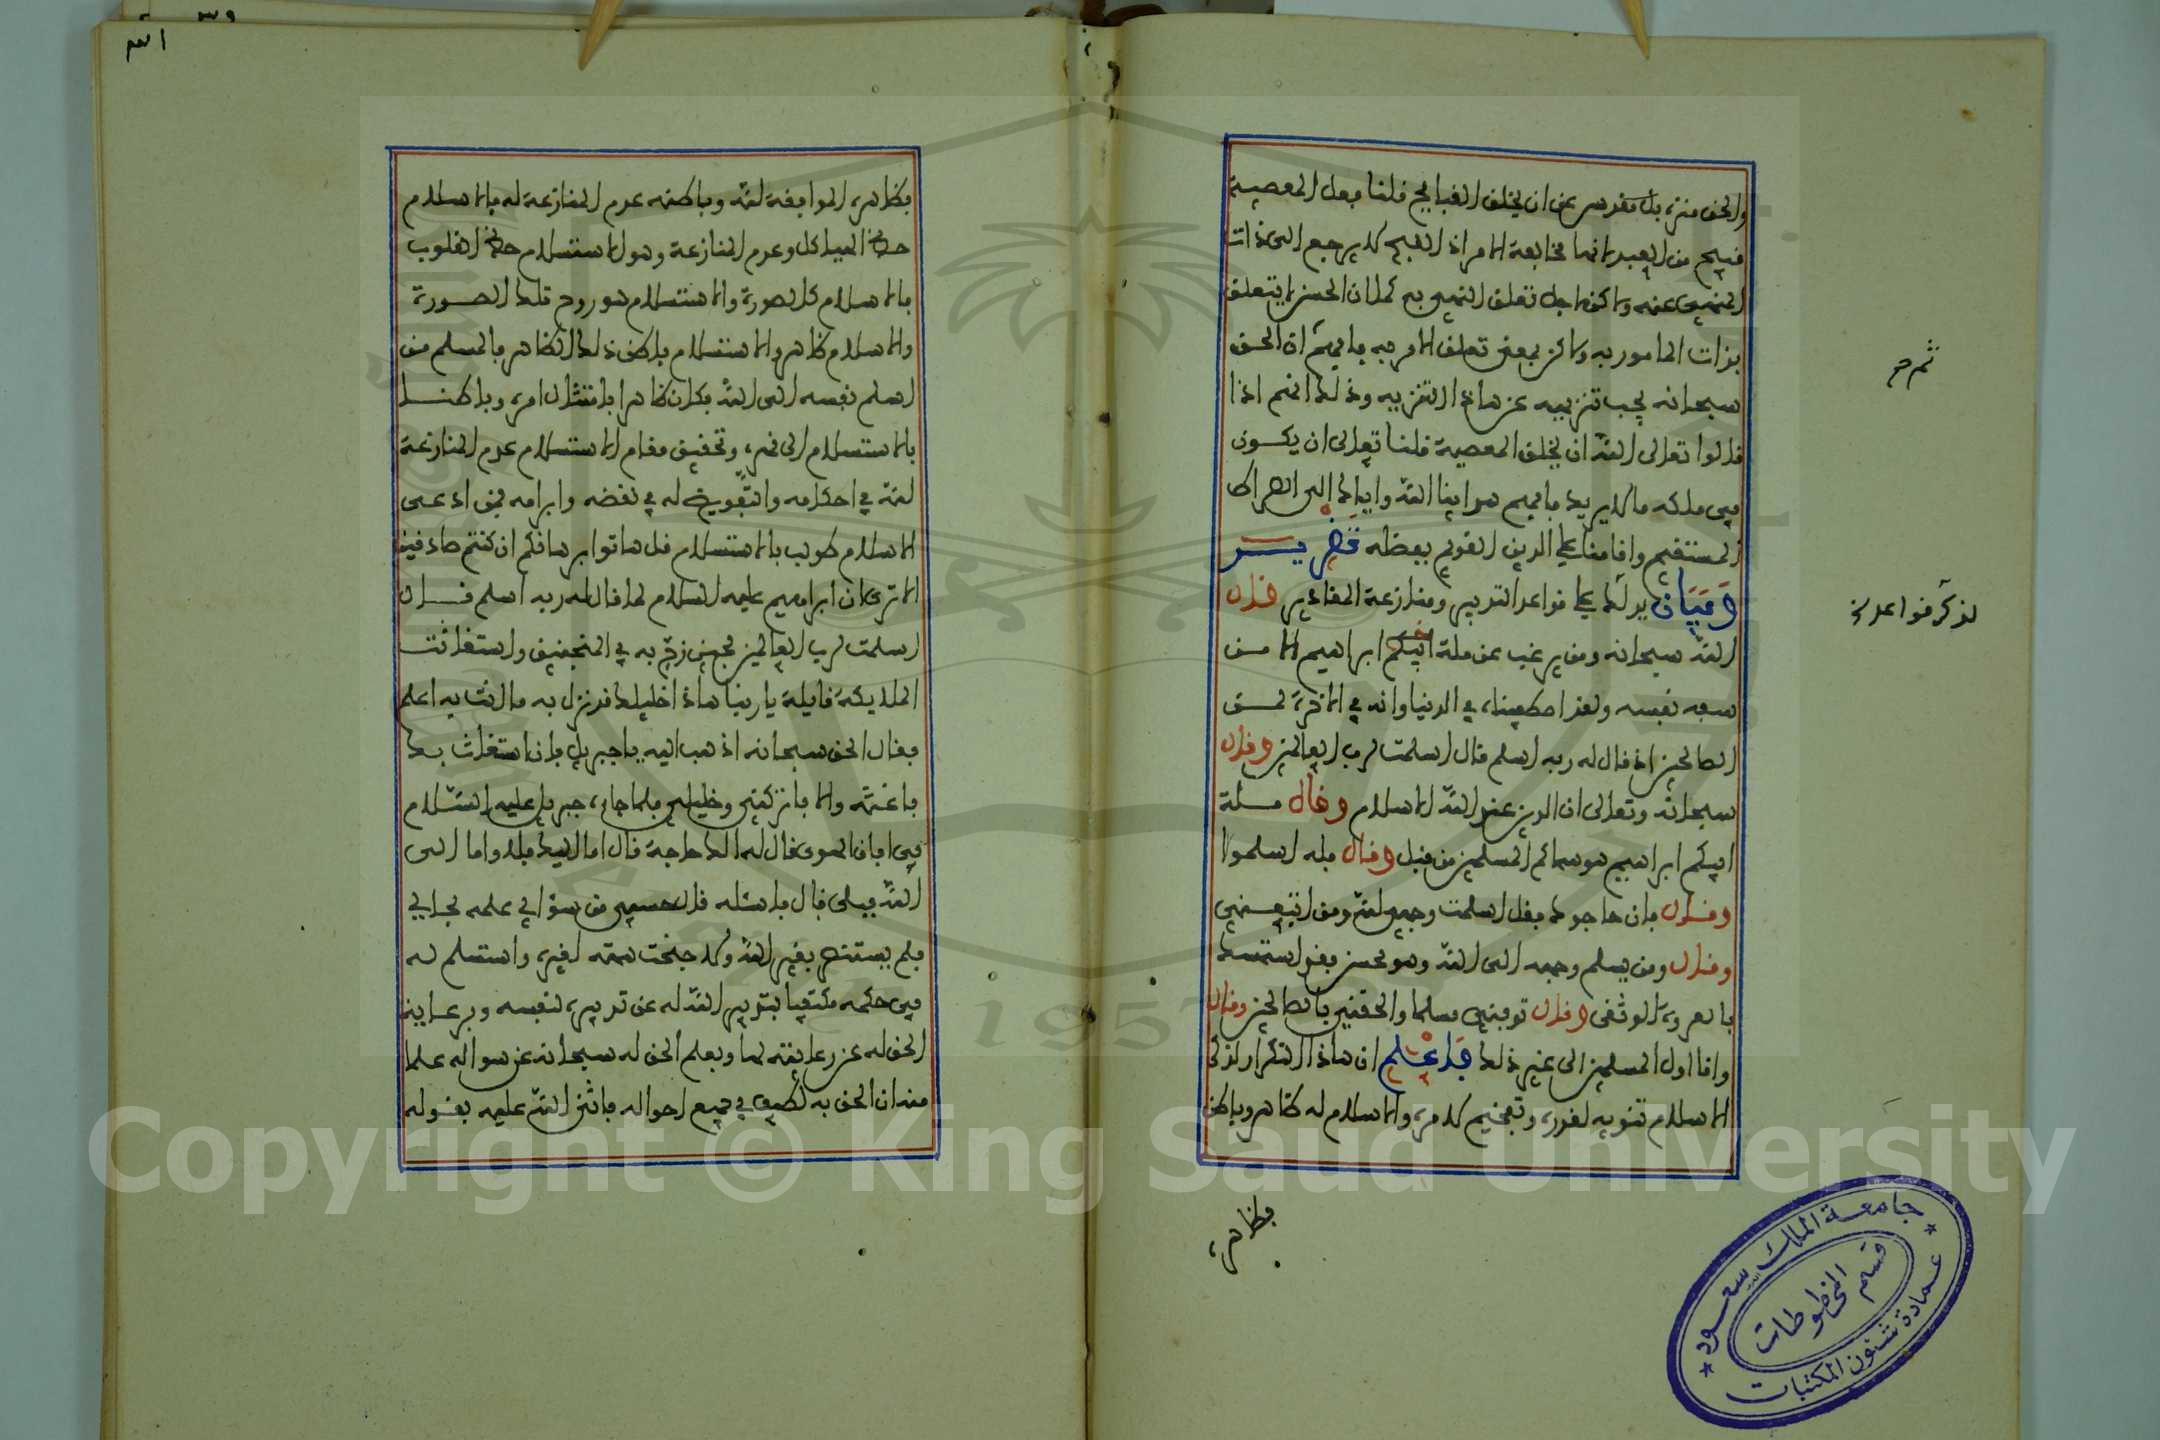 والحق منزه بل مقدس عن ان يخلق القبايح قلنا فعل المعصية
قبيح من العبد لانها مخالفة الامر اذ القبح لا يرجع الى ذات
المنهي عنه ولاكن لاجل تعلق النهي به كما ان الحسن لا يتعلق
بذات المامور به ولاكن بمعنى تعلق الامر به
سبحانه يجب تنزيهه عن هاذا التنزيه وذلك انهم اذا
قالوا تعالى الله ان يخلق المعصية قلنا تعالى ان يكون
في ملكه ما لا يريد فافهم هدانا الله واياك الى الصراط
المستقيم واقامنا على الدين القويم بفضله تحصيـر
وبيان يدلك على قواعد التدبير ومنازعة المقادير قال
الله سبحانه ومن يرغب عن ملة ابيكم ابراهيم الا من
سفه نفسه ولقد اصطفيناه في الدنيا وانه في الاخرة لمن
الصالحين اذ قال له ربه اسلم قال اسلمت لرب العالمين وقال
سبحانه وتعالى ان الدين عند الله الاسلام وقال ملة
ابيكم ابراهيم هو سماكم المسلمين من قبل وقال فله اسلموا
وقال فان حاجوك فقل اسلمت وجهي لله ومن اتبعني
وقال ومن يسلم وجهه الى الله وهو محسن فقد استمسك
بالعروة الوثقى وقال توفني مسلما والحقني بالصالحين وقال
وانا اول المسلمين الى غير ذلك فاعلم ان هاذا التكرار لذكر
الاسلام تنويه لقدره وتفخيم لامره والاسلام له ظاهر وباطن
فظاهره
ثم ح
لذكر قواعد نخ
جامعة الملك سعود
قسم المخطوطات
عمادة شئون المكتبات
فظاهره الموافقة لله وباطنه عدم المنازعة له فالاسلام
حظ الهياكل وعدم المنازعة وهو الاستسلام حظ القلوب
فالاسلام كالصورة والاستسلام هو روح تلك الصورة
والاسلام ظاهر والاستسلام باطن ذلك الظاهر فالمسلم من
اسلم نفسه الى الله فكان ظاهرا بامتثال امره وباطنا
بالاستسلام الى قهره وتحقيق مقام الاستسلام عدم المنازعة
لله في احكامه والتفويض له في نقضه وابرامه فمن ادعى
الاسلام طولب بالاستسلام قل هاتوا برهانكم ان كنتم صادقين
الا ترى ان ابراهيم عليه السلام لما قال له ربه اسلم قال
اسلمت لرب العالمين فحين زج به في المنجنيق واستغاثت
الملايكة قايلة يا ربنا هاذا خليلك قد نزل به ما انت به اعلم
فقال الحق سبحانه اذهب اليه يا جبريل فان استغاث بك
فاغثه والا فاتركني وخليلي فلما جاءه جبريل عليه السلام
في افق الهوى قال له الك حاجة قال اما اليك فلا واما الى
الله فبلى قال فاسئله قال حسبي من سؤالي علمه بحالي
فلم يستنصر بغير الله ولا جنحت همته لغيره واستسلم له
في حكمه مكتفيا بتدبير الله له عن تدبيره لنفسه وبرعاية
الحق له عن رعايته لها وبعلم الحق له سبحانه عن سواله علما
منه ان الحق به لطيف في جميع احواله فاثنى الله عليه بقوله
Copyright © King Saud University
1957